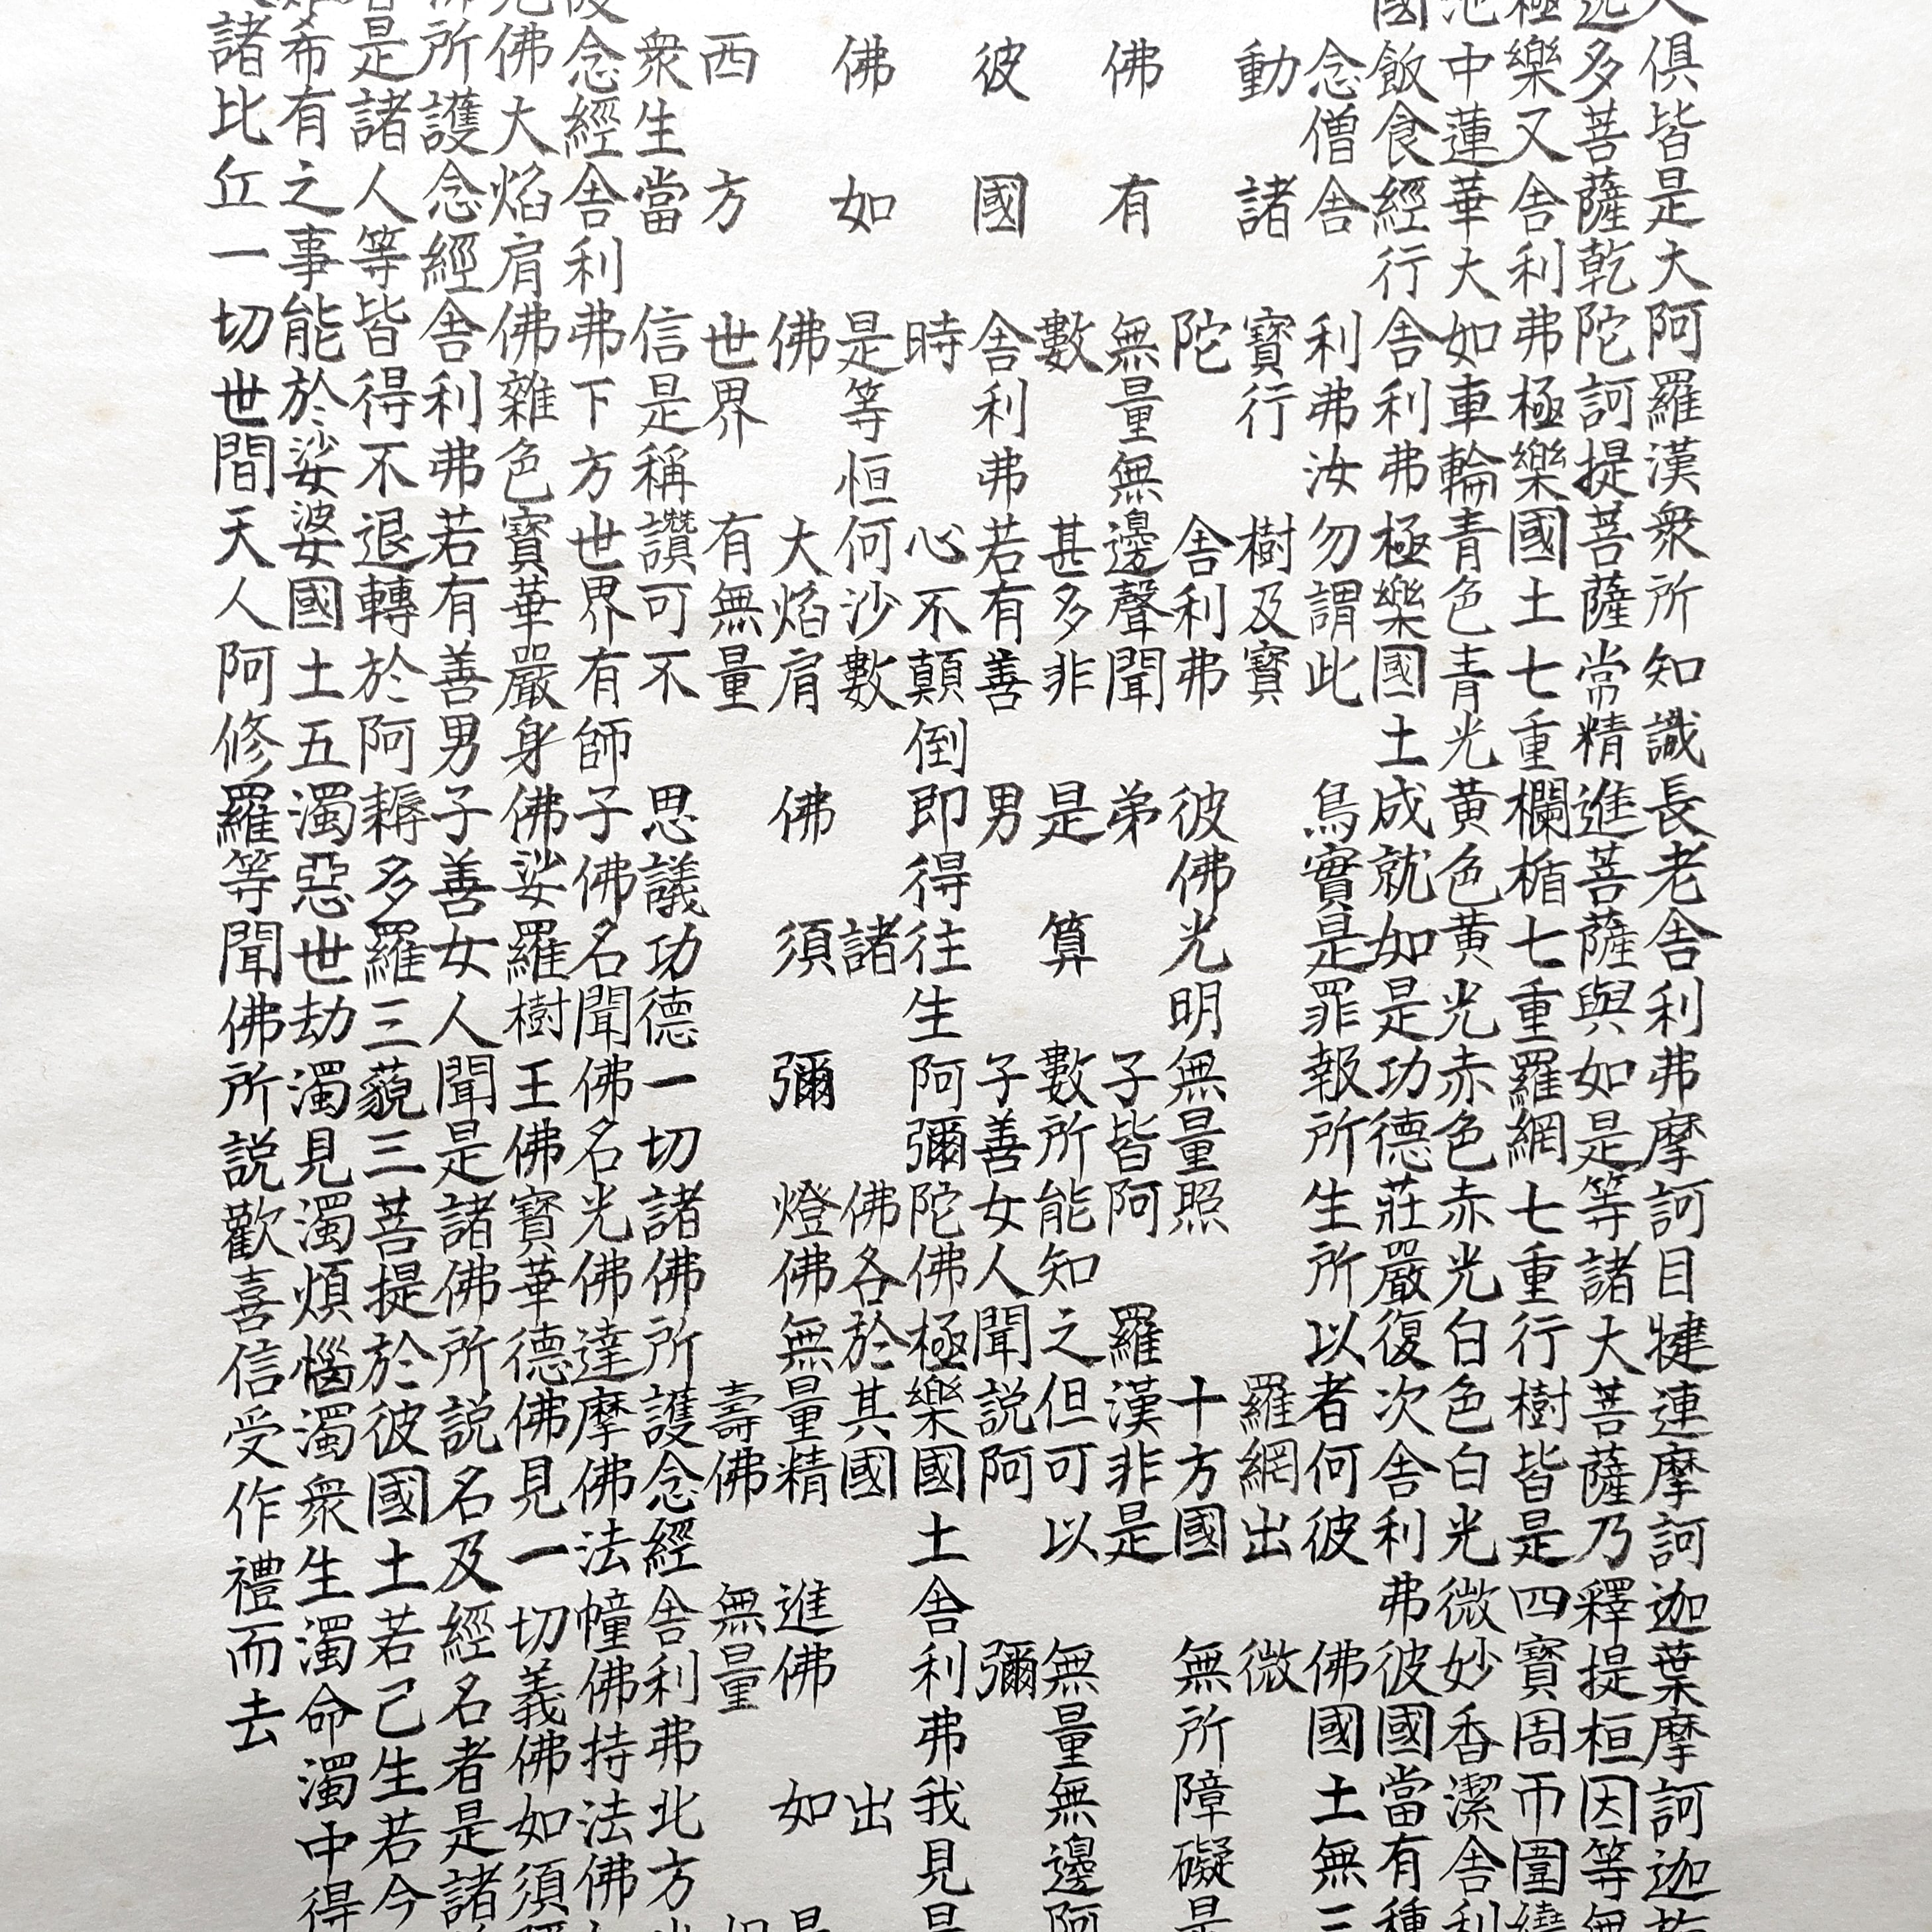 俱皆是大阿羅漢衆所知識長老舍利弗摩訶目犍連摩訶迦葉摩訶迦
多菩薩乾陀訶提菩薩常精進菩薩與如是等諸大菩薩乃釋提桓因等無
極樂又舍利弗極樂國土七重欄楯七重羅網七重行樹皆是四寶周帀圍繞
池中蓮華大如車輪青色青光黄色黄光赤色赤光白色白光微妙香潔舍利
國飯食經行舍利弗極樂國土成就如是功德莊嚴復次舍利弗彼國當有種
念僧舍利弗汝勿謂此鳥實是罪報所生所以者何彼佛國土無三
動諸寶行樹及寶羅網出微
陀舍利弗彼佛光明無量照十方國無所障礙是
佛有無量無邊聲聞弟子皆阿羅漢非是
數甚多非是算數所能知之但可以無量無邊阿
彼國舍利弗若有善男子善女人聞説阿彌
時心不顛倒即得往生阿彌陀佛極樂國土舍利弗我見是
佛如是等恒何沙數諸佛各於其國出
佛大焰肩佛須彌燈佛無量精進佛如是
西方世界有無量壽佛無量相
衆生當信是稱讚可不思議功德一切諸佛所護念經舍利弗北方
念經舍利弗下方世界有師子佛名聞佛名光佛達摩佛法幢佛持法佛
佛大焰肩佛雜色寶華嚴身佛娑羅樹王佛寶華德佛見一切義佛如須彌
所護念經舍利弗若有善男子善女人聞是諸佛所説名及經名者是諸
是諸人等皆得不退轉於阿耨多羅三藐三菩提於彼國土若己生若今
希有之事能於娑婆國土五濁惡世劫濁見濁煩惱濁衆生濁命濁中得
諸比丘一切世間天人阿修羅等聞佛所説歡喜信受作禮而去